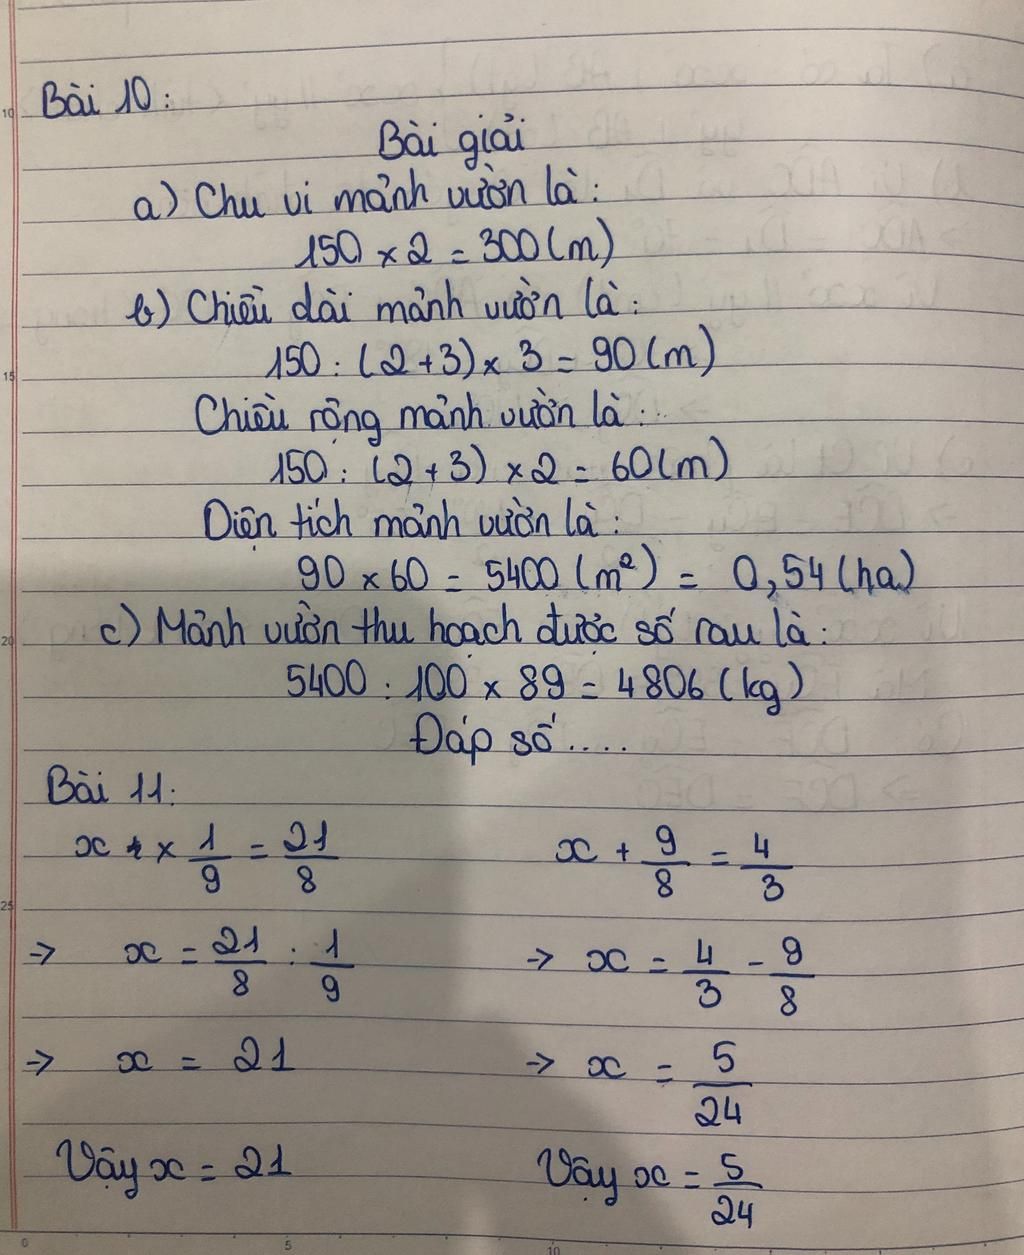 Bài 10:
Bài giải
a) Chu vi mảnh vườn là:
150 × 2 = 300 (m)
b) Chiều dài mảnh vườn là:
150 : (2 + 3) × 3 = 90 (m)
Chiều rộng mảnh vườn là:
150 : (2 + 3) × 2 = 60 (m)
Diện tích mảnh vườn là:
90 × 60 = 5400 (m²) = 0,54 (ha)
c) Mảnh vườn thu hoạch được số rau là:
5400 : 100 × 89 = 4806 (kg)
Đáp số....
Bài 11:
x × 1/9 = 21/8
→ x = 21/8 : 1/9
→ x = 21
Vậy x = 21
x + 9/8 = 4/3
→ x = 4/3 - 9/8
→ x = 5/24
Vậy x = 5/24
10
15
20
25
0
5
10